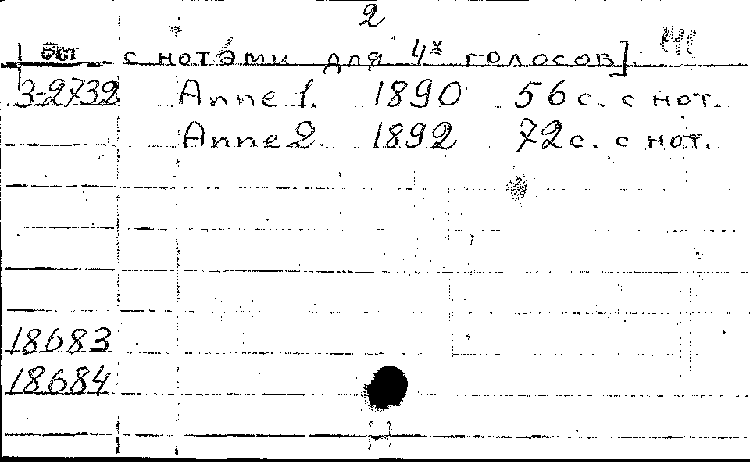 2
с нотами для 4х голосов].
3-2732 Anne 1. 1890 56 с. с нот.
Anne 2 1892 72 с. с нот.
18683
18684